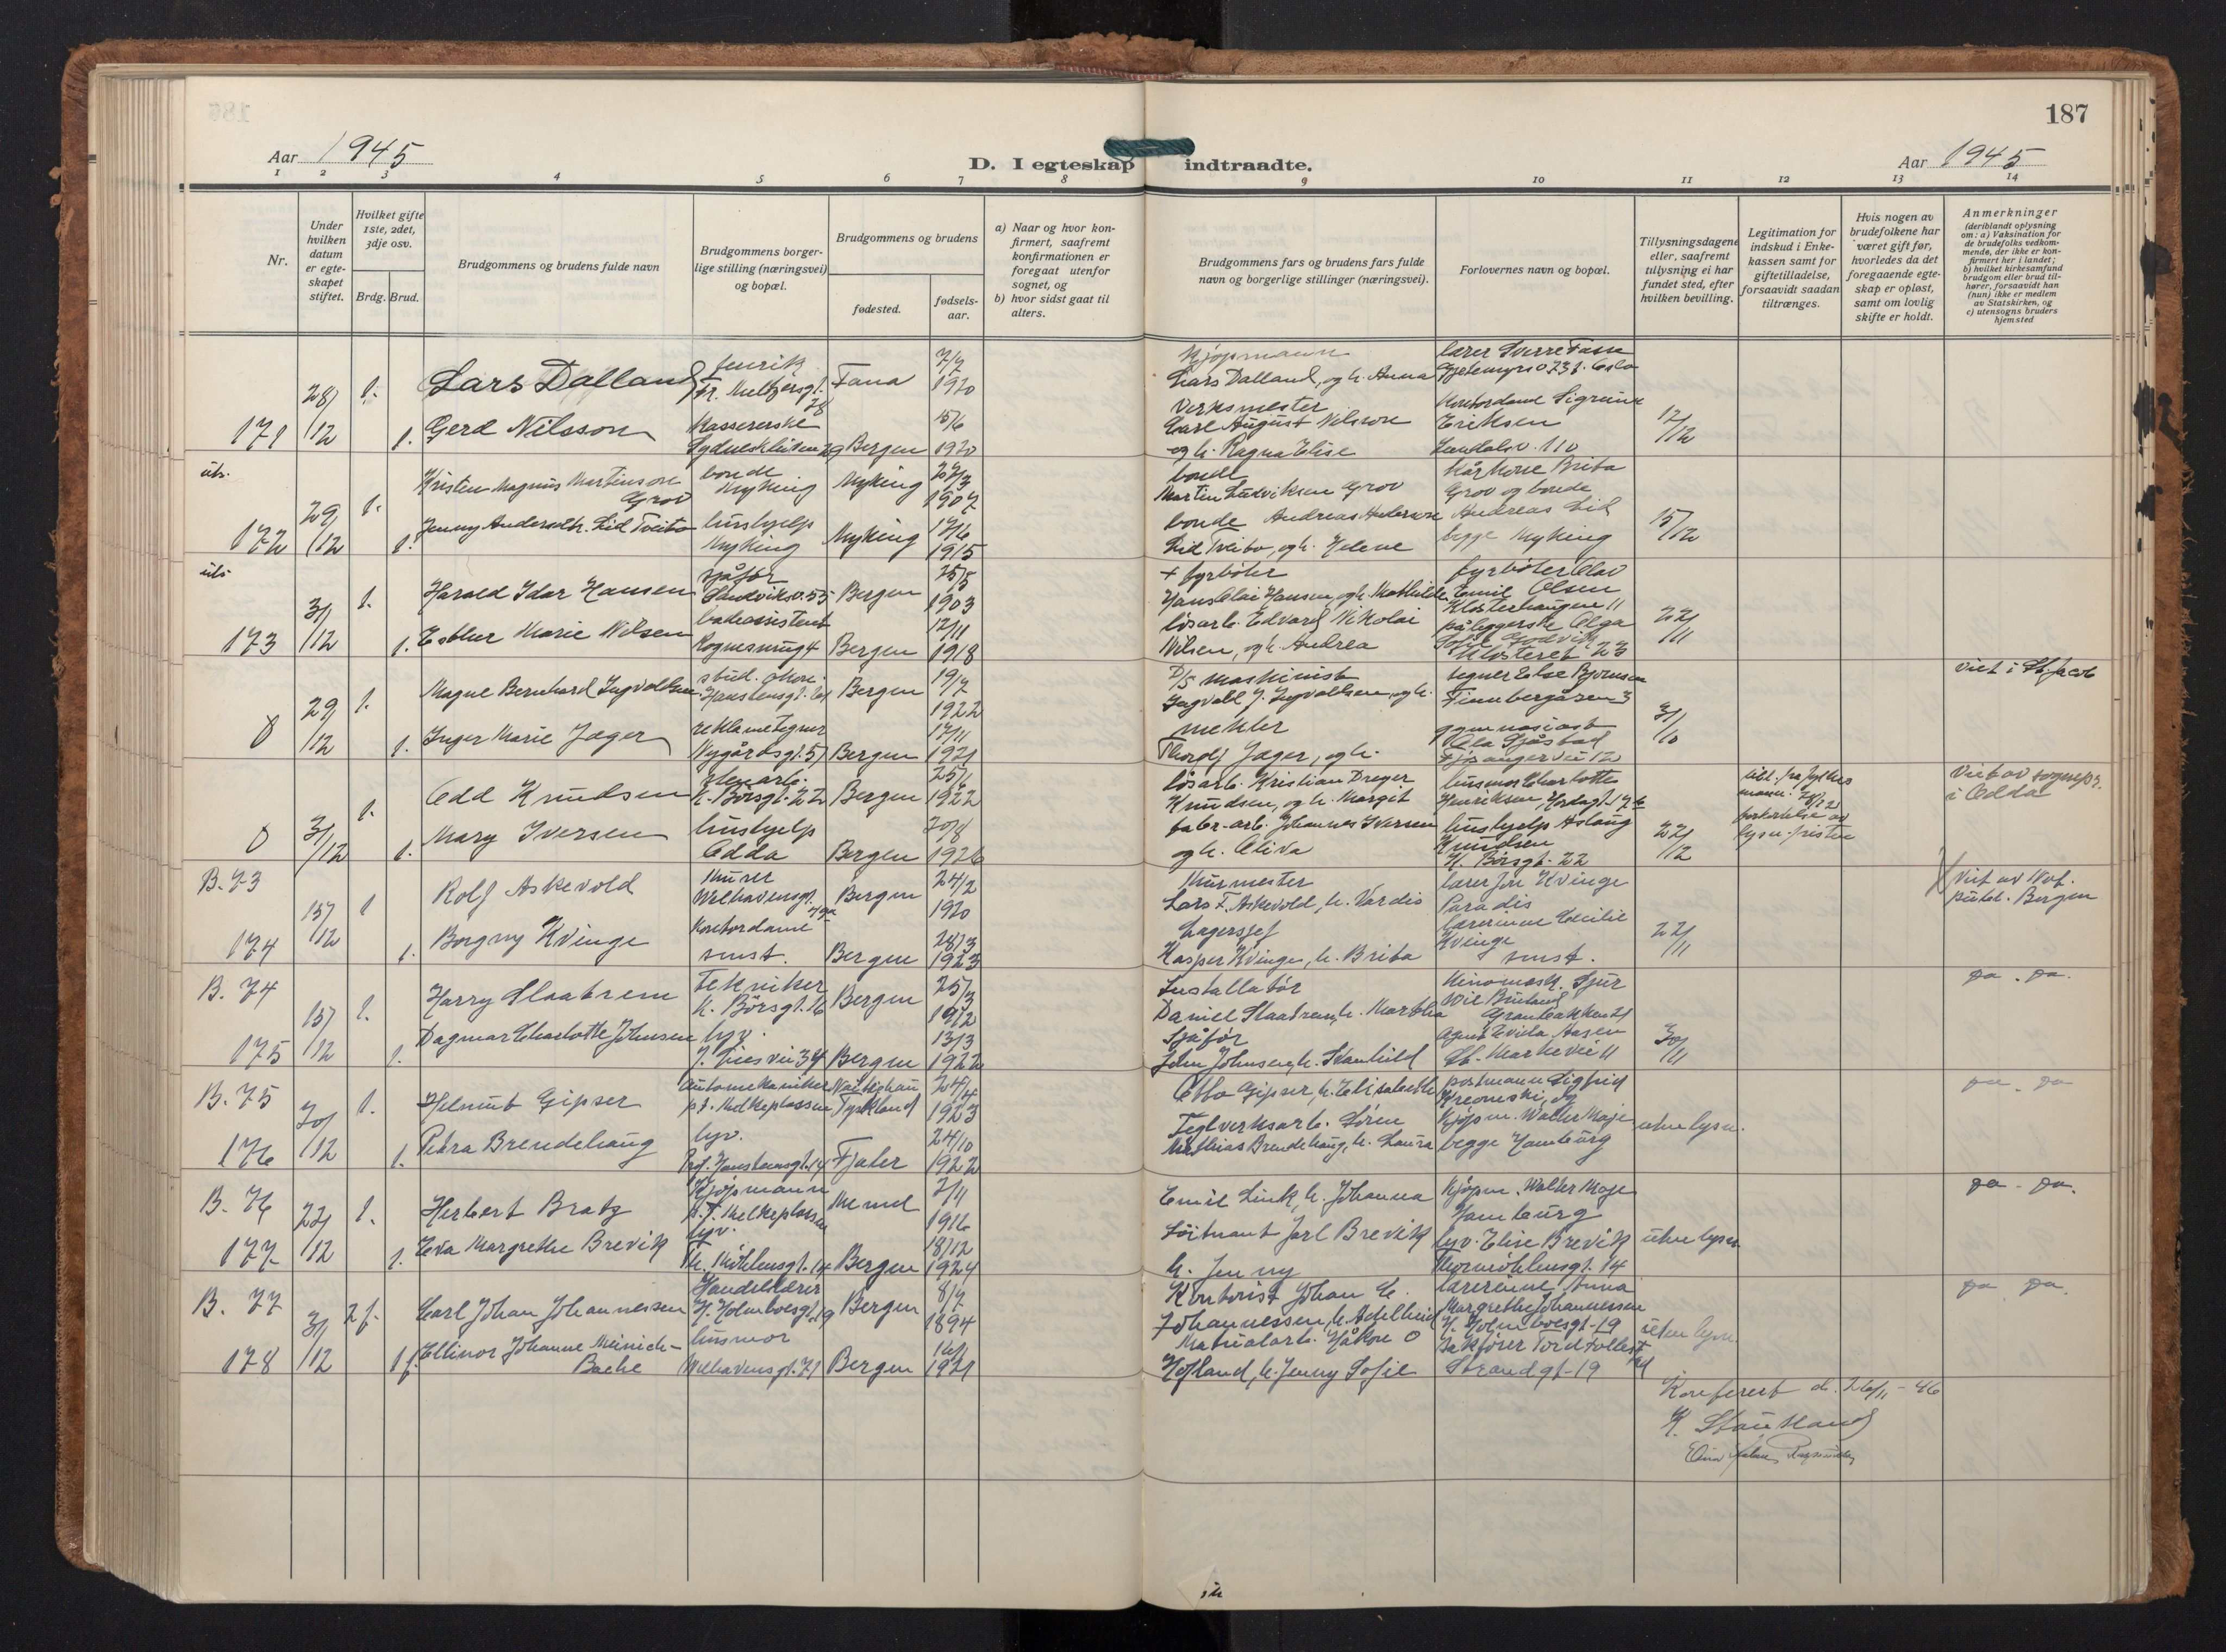 187
Aar 1945
D. I egteskap indtraadte.
Aar 1945
1 2 3 4 5 6 7 8 9 10 11 12 13 14
Nr.
Under hvilken datum er egteskapet stiftet.
Hvilket gifte 1ste, 2det, 3dje osv.
Brdg. Brud.
Brudgommens og brudens fulde navn
Brudgommens borgerlige stilling (næringsvei) og bopæl.
Brudgommens og brudens
fødested.
fødselsaar.
a) Naar og hvor konfirmert, saafremt konfirmationen er foregaat utenfor sognet, og
b) hvor sidst gaat til alters.
Brudgommens fars og brudens fars fulde navn og borgerlige stillinger (næringsvei).
Forlovernes navn og bopæl.
Tillysningsdagene eller, saafremt tillysning ei har fundet sted, efter hvilken bevilling.
Legitimation for indskud i Enkekassen samt for giftetilladelse, forsaavidt saadan tiltrænges.
Hvis nogen av brudefolkene har været gift før, hvorledes da det foregaaende egteskap er opløst, samt om lovlig skifte er holdt.
Anmerkninger
(deriblandt oplysning om: a) Vaksination for de brudefolks vedkommende, der ikke er konfirmert her i landet;
b) hvilket kirkesamfund brudgom eller brud tilhører, forsaavidt han (hun) ikke er medlem av Statskirken, og
c) utensogns bruders hjemsted
171
28/12
1.
Lars Dalland
fenrik
Fana
7/7
1920
Kjøpmann
Lars Dalland, og h. Anna
lærer Sverre
1.
Gerd Nilsson
Kassererske
Sydneskleiven 29
Bergen
15/6
1920
Verksmester
Carl August Nilsson
og h. Ragna Elise
Kontordame Sigrunn
Eriksen
12/12
uts.
172
29/12
1.
Kristen Magnus Martinson
Grov
bonde
Myking
Myking
27/3
1907
bonde
Martin Ludviksen Grov
Kårkone Brita
Grov og bonde
1.
Jenny Andersdtr. Lid Tveito
hushjelp
Myking
Myking
1915
bonde Andreas Anderson
Lid Tveito, og h. Helene
Andreas Lid
begge Myking
15/12
uts.
173
31/12
1.
Harald Idar Hansen
sjåfør
Sandviksv. 55
Bergen
25/5
1903
+ fyrbøter
Hans Olai Hansen, og h. Mathilde
fyrbøter Olav
Emil Olsen
Klosterhaugen 11
1.
Esther Marie Nilsen
badeassistent
Bergen
12/11
1918
løsarb. Edvard Nikolai
Nilsen, og h. Andrea
påleggerske Olga
Sofie Godvik
Klosteret 23
22/11
0
29/12
1.
Magne Bernhard Ingvaldsen
Hanstensgt.
Bergen
19/7
1922
D/S Maskinist
Ingvald J. Ingvaldsen, og h.
tegner Else Bjornsen
Finnbergåsen 3
viet i St. Jacob
1.
Inger Marie Jæger
reklametegner
Nygårdsgt. 51
Bergen
17/11
1921
mekler
Thorolf Jæger, og h.
gymnasiast
Ola Sjåstad
Fjøsangervei 12
31/10
0
31/12
1.
Odd Knudsen
K. Børsgt. 22
Bergen
25/1
1922
løsarb. Kristian Dreyer
Knudsen, og h. Margit
husmor Charlotte
Henriksen
till. fra fylkes
mann. 28/12
forkortelse av
lysn. fristen
Viet av sognepr.
i Odda
1.
Mary Iversen
hushjelp
Odda
Bergen
20/8
1926
fabr.-arb. Johannes Iversen
og h. Oliva
hushjelp Aslaug
Knudsen
K. Børsgt. 22
22/12
B. 73
174
15/12
1
Rolf Askevold
Murer
Welhavensgt.
Bergen
24/2
1920
Murmester
Lars F. Askevold, h. Vardis
lærer Jon Kvinge
Paradis
Viet av Not.
publ. Bergen
1.
Borgny Kvinge
Kontordame
smst.
Bergen
28/3
1923
Lagersjef
Kasper Kvinge, h. Brita
lærerinne Cecilie
Kvinge
smst.
22/11
B. 74
175
15/12
1.
Harry Slaatrem
Tekniker
K. Børsgt. 16
Bergen
25/3
1912
Installatør
Daniel Slaatrem, h. Martha
Kinomask. Sjur
Granbakken 21
do. do.
1.
Dagmar Charlotte Johnsen
hv.
J. Liesvei 34
Bergen
13/3
1922
Sjåfør
John Johnsen, h. Svanhild
Agnes Evida Aasen
St. Markevei 11
30/11
B. 75
176
20/12
1.
Helmut Gipser
Automekaniker
p.t. Melkeplassen
Tyskland
24/4
1923
Otto Gipser, h. Elisabeth
postmann Sigfrid
do. do
1.
Petra Brendehaug
hv.
Prof. Hansteensgt. 14
Fjaler
24/10
1922
Teglverksarb. Søren
Mathias Brendehaug, h. Laura
Kjøpm. Walter Moje
begge Hamburg
uten lysn.
B. 76
177
22/12
1.
Herbert Bratz
Kjøpmann
p.t. Melkeplassen
Memel
2/11
1916
Emil Link, h. Johanna
Kjøpm. Walter Moje
Hamburg
do. do.
1.
Eva Margrethe Brevik
hv.
Th. Möhlensgt. 14
Bergen
18/12
1924
Løitnant Jarl Brevik
h. Jenny
hv. Elise Brevik
Thormöhlensgt. 14
uten lysn.
B. 77
178
31/12
2 f.
Carl Johan Johannessen
Handelslærer
H. Holmboesgt. 19
Bergen
8/7
1894
Kontorist Johan C.
Johannessen, h. Adelheid
lærerinne Anna
Margrethe Johannessen
H. Holmboesgt. 19
do. do.
1 f.
Ellinor Johanne Meinich-
Bache
husmor
Welhavensgt. 71
Bergen
16/1
1921
Materialarb. Håkon O
Hofland, h. Jenny Sofie
Sakfører Tord Follestad
Strandgt. 19
uten lysn.
Konferert d. 26/11 - 46